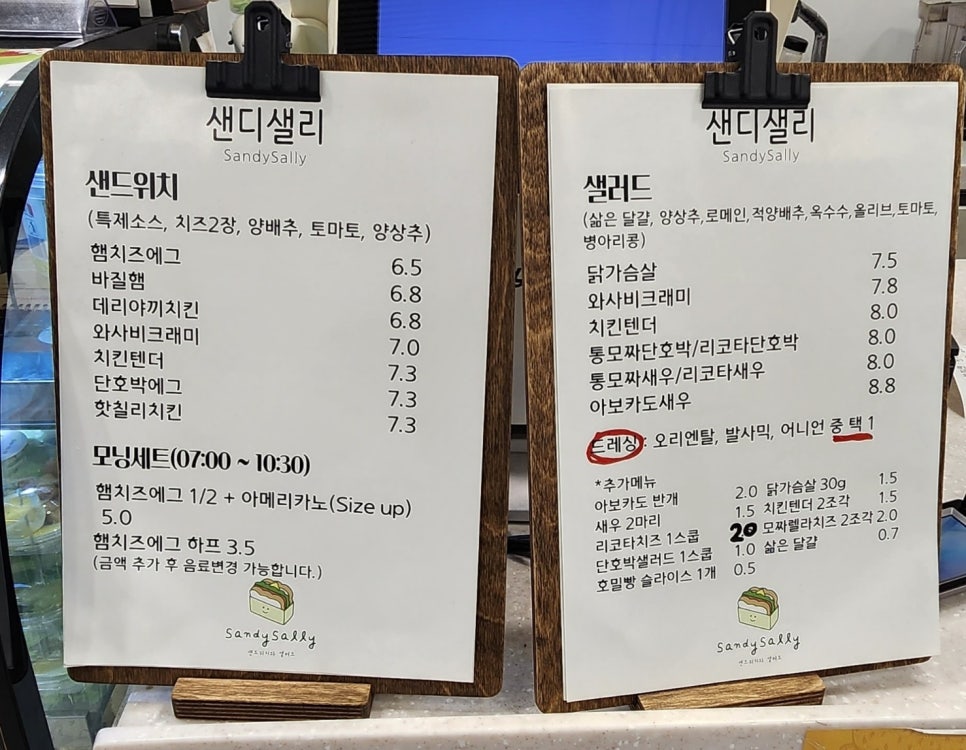 샌디샐리
SandySally
샌드위치
(특제소스, 치즈2장, 양배추, 토마토, 양상추)
햄치즈에그 6.5
바질햄 6.8
데리야끼치킨 6.8
와사비크래미 7.0
치킨텐더 7.3
단호박에그 7.3
핫칠리치킨 7.3
모닝세트(07:00 ~ 10:30)
햄치즈에그 1/2 + 아메리카노(Size up)
5.0
햄치즈에그 하프 3.5
(금액 추가 후 음료변경 가능합니다.)
SandySally
샌드위치와 샐러드
샌디샐리
SandySally
샐러드
(삶은 달걀, 양상추,로메인,적양배추,옥수수,올리브,토마토,
병아리콩)
닭가슴살 7.5
와사비크래미 7.8
치킨텐더 8.0
통모짜단호박/리코타단호박 8.0
통모짜새우/리코타새우 8.0
아보카도새우 8.8
드레싱: 오리엔탈, 발사믹, 어니언 중 택 1
*추가메뉴
아보카도 반개 2.0 닭가슴살 30g 1.5
새우 2마리 1.5 치킨텐더 2조각 1.5
리코타치즈 1스쿱 20 모짜렐라치즈 2조각 2.0
단호박샐러드 1스쿱 1.0 삶은 달걀 0.7
호밀빵 슬라이스 1개 0.5
SandySally
샌드위치와 샐러드